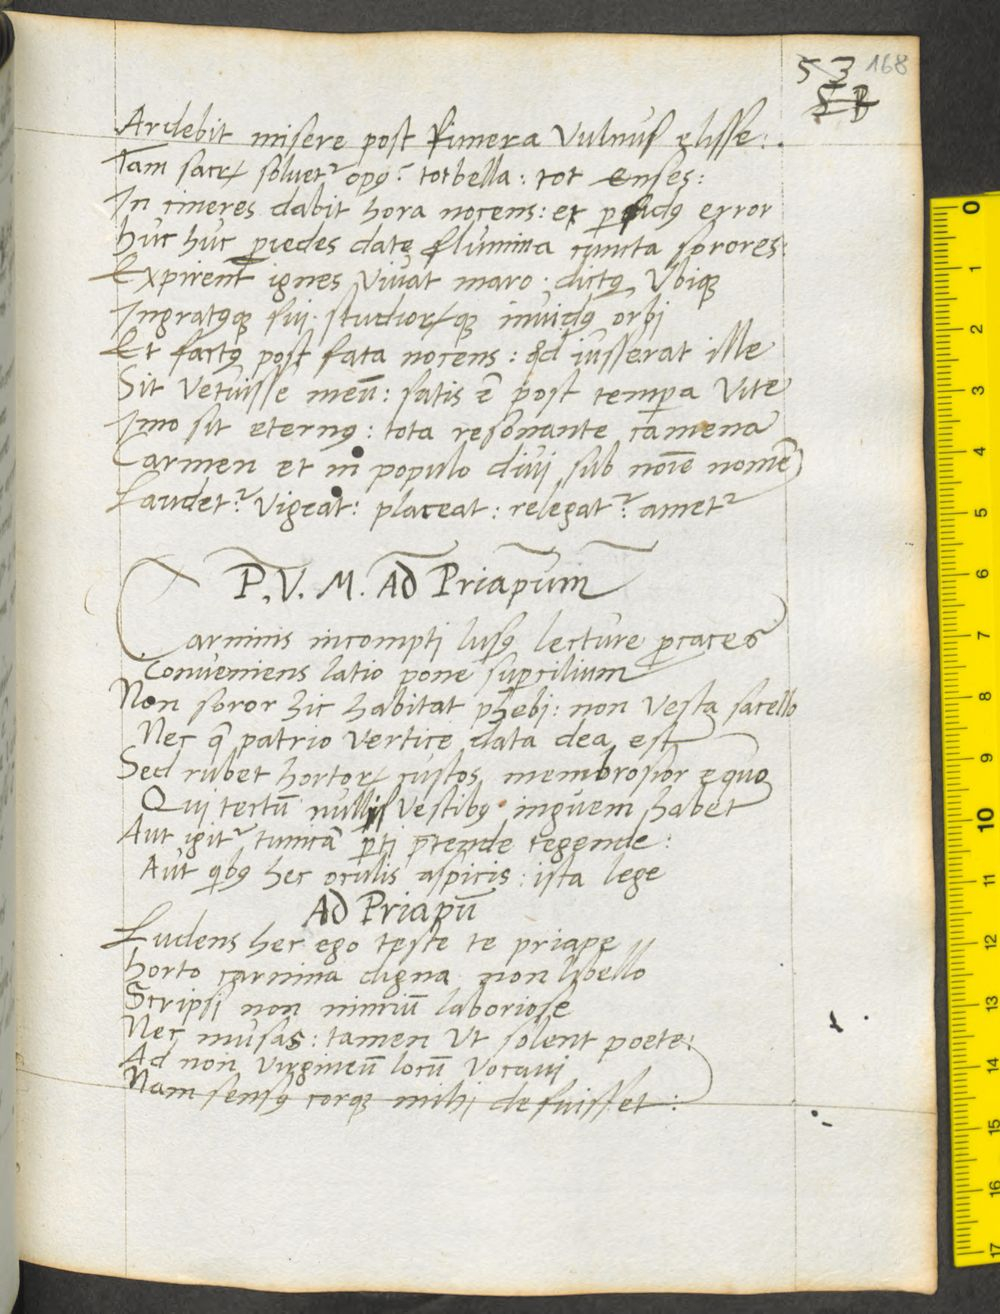 53 168
Ardebit misere post funera Vulnus elisse:
Tam sacrꝝ soluet᷑ opꝰ? tot bella: tot enses:
In cineres dabit hora nocens: et ꝑfidꝰ error
huc huc piedes date flumina cuncta sorores:
Expirent ignes vivat maro. dictꝰ Vbiqꝫ
Ingratꝰqꝫ sui. studioꝝqꝫ invidꝰ orbi
Et factꝰ post fata nocens: qđ iusserat ille
Sit vetuisse meū: satis ē post tempora Vite
Imo sit eternꝰ: tota resonante camena
Carmen et in populo divi sub noīe nomē
Laudet᷑: Vigeat: placeat: relegat᷑: amet᷑
P. V. M. AD Priapum
Carminis incompti lusꝰ lecture ꝓcaces
Conveniens latio pone suꝑcilium
Non soror hic habitat phebi: non Vesta sacello
Nec q̄ patrio vertice data dea est
Sed rubet hortoꝝ custos membrosior equo
Qui tectū nullis Vestibꝰ inguem habet
Aut igit᷑ tunicā ꝑti p̄tende tegende:
Aut qibꝰ hec oculis aspicis: ista lege
AD Priapū
Ludens hec ego teste te priape
horto carmina digna non libello
Scripsi non nimiū laboriose
Nec musas: tamen Ut solent poete:
Ad non virgineū locū Vocavi
Nam sensꝰ corqꝫ mihi defuisset:
0
1
2
3
4
5
6
7
8
9
10
11
12
13
14
15
16
17